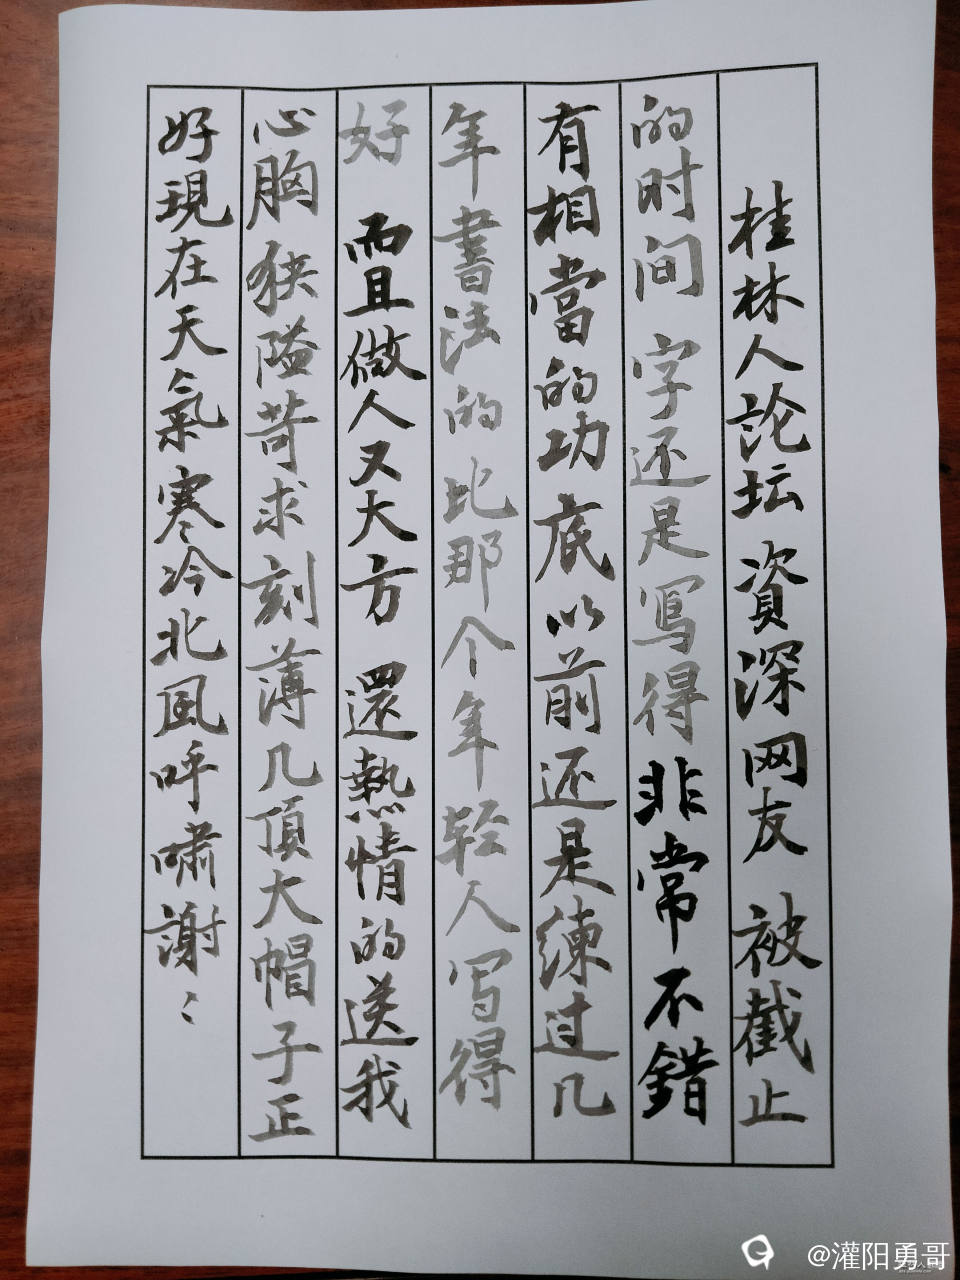 桂林人论坛資深网友被截止
的时间字还是写得非常不錯
有相當的功底以前还是练过几
年書法的比那个年轻人写得
好而且做人又大方還熱情的送我
心胸狭隘苛求刻薄几頂大帽子正
好現在天氣寒冷北風呼嘯謝〻
@灌阳勇哥